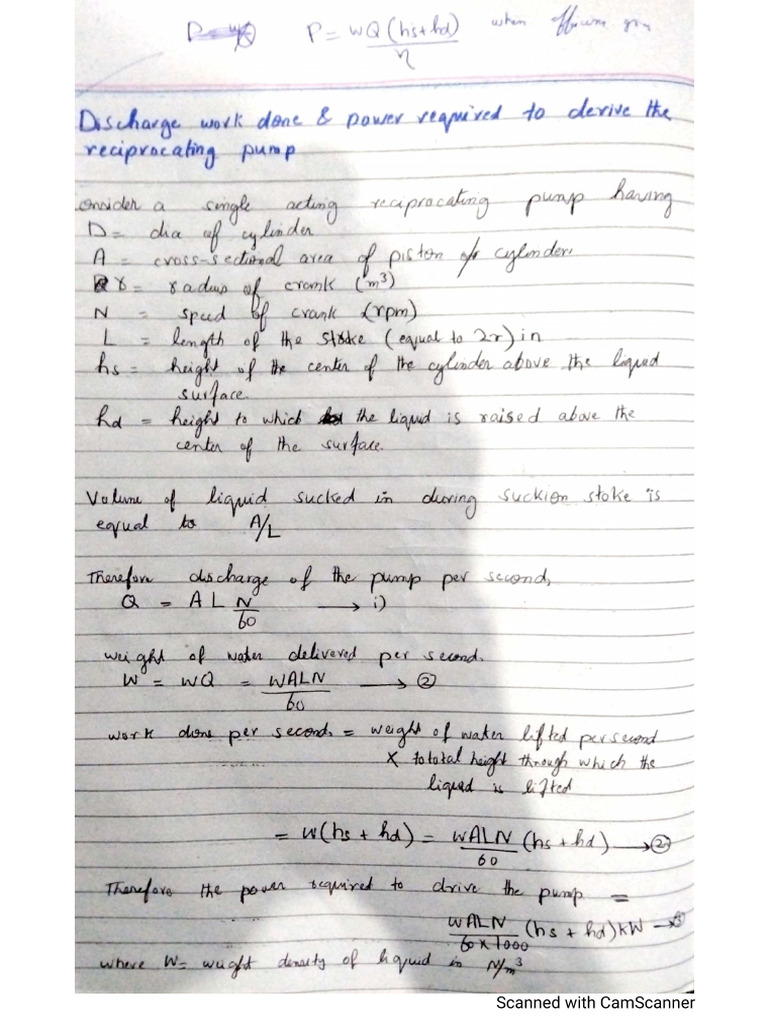 P = wQ (hs+hd) when
η
Discharge work done & power required to derive the
reciprocating pump
onsider a single acting reciprocating pump having
D = dia of cylinder
A = cross-sectional area of piston o/r cylinder.
r = radius of crank (m³)
N = speed of crank (rpm)
L = length of the stoke (equal to 2r) in
hs = height of the center of the cylinder above the liquid
surface.
hd = height to which the liquid is raised above the
center of the surface.
Volume of liquid sucked in during suckion stoke is
equal to A/L
Therefore discharge of the pump per second,
Q = A L N/60 → i)
weight of water delivered per second.
W = WQ = WALN/60 → ②
work done per second. = weight of water lifted per second
× tototal height through which the
liquid is lifted
= W(hs + hd) = WALN/60 (hs + hd) → ②
Therefore the power required to drive the pump =
WALN/60×1000 (hs + hd) kW → ③
where W= weight density of liquid in N/m³
Scanned with CamScanner